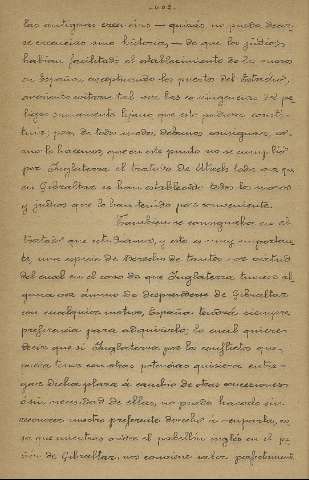 las antiguas creencias — quizás no pueda decir
se creencias sino historia, — de que los judíos
habían facilitado el establecimiento de los moros
en España, exceptuando los puertos del Estrecho,
para evitar tal vez las contingencias y pe
ligros sumamente lejano que esto pudiera consti-
tuir; pero, de todos modos, debemos consignar, co
mo lo hacemos, que en este punto no se cumplió
por Inglaterra el tratado de Utrech toda vez que
en Gibraltar se han establecido todos los moros
y judíos que lo han tenido por conveniente.
También se consignaba en el
tratado que estudiamos, y esto es muy importan
te, una especie de derecho de tanteo en virtud
del cual en el caso de que Inglaterra tuviese al
guna vez ánimo de desprenderse de Gibraltar
con cualquier motivo, España tendrá siempre
preferencia para adquirirlo; lo cual quiere
decir que si Inglaterra por los conflictos que
pueda tener con otras potencias quisiera entre-
gar dicha plaza á cambio de otras concesiones
ó sin necesidad de ellas, no puede hacerlo sin
reconocer nuestro preferente derecho á
sa que mientras ondee el pabellón inglés en el pe
ñón de Gibraltar nos conviene saber perfectamente